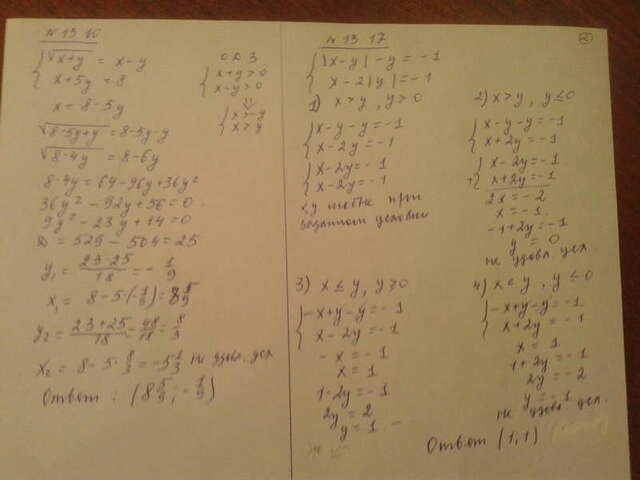 № 13 10
{ √(x+y) = x-y
x+5y = 8
О Д З
{ x+y>0
x-y>0
⇓
{ x>-y
x>y
x = 8-5y
√(8-5y+y) = 8-5y-y
√(8-4y) = 8-6y
8-4y = 64-96y+36y²
36y² - 92y + 56 = 0
9y² - 23y + 14 = 0
D = 529 - 504 = 25
y₁ = (23-25)/18 = -1/9
x₁ = 8-5·(-1/9) = 8 5/9
y₂ = (23+25)/18 = 48/18 = 8/3
x₂ = 8-5·8/3 = -5 1/3 не удовл. усл
Ответ: (8 5/9; -1/9)
№ 13 17
②
{ |x-y| - y = -1
x-2|y| = -1
1) x>y, y>0
{ x-y-y = -1
x-2y = -1
{ x-2y = -1
x-2y = -1
x,y любые при
заданном условии
2) x>y, y≤0
{ x-y-y = -1
x+2y = -1
+{ x-2y = -1
x+2y = -1
2x = -2
x = -1
-1+2y = -1
y = 0
не удовл усл.
3) x≤y, y>0
{ -x+y-y = -1
x-2y = -1
-x = -1
x = 1
1-2y = -1
2y = 2
y = 1
4) x<y, y≤0
{ -x+y-y = -1
x+2y = -1
x = 1
1+2y = -1
2y = -2
y = -1
не удовл усл.
Ответ (1;1)